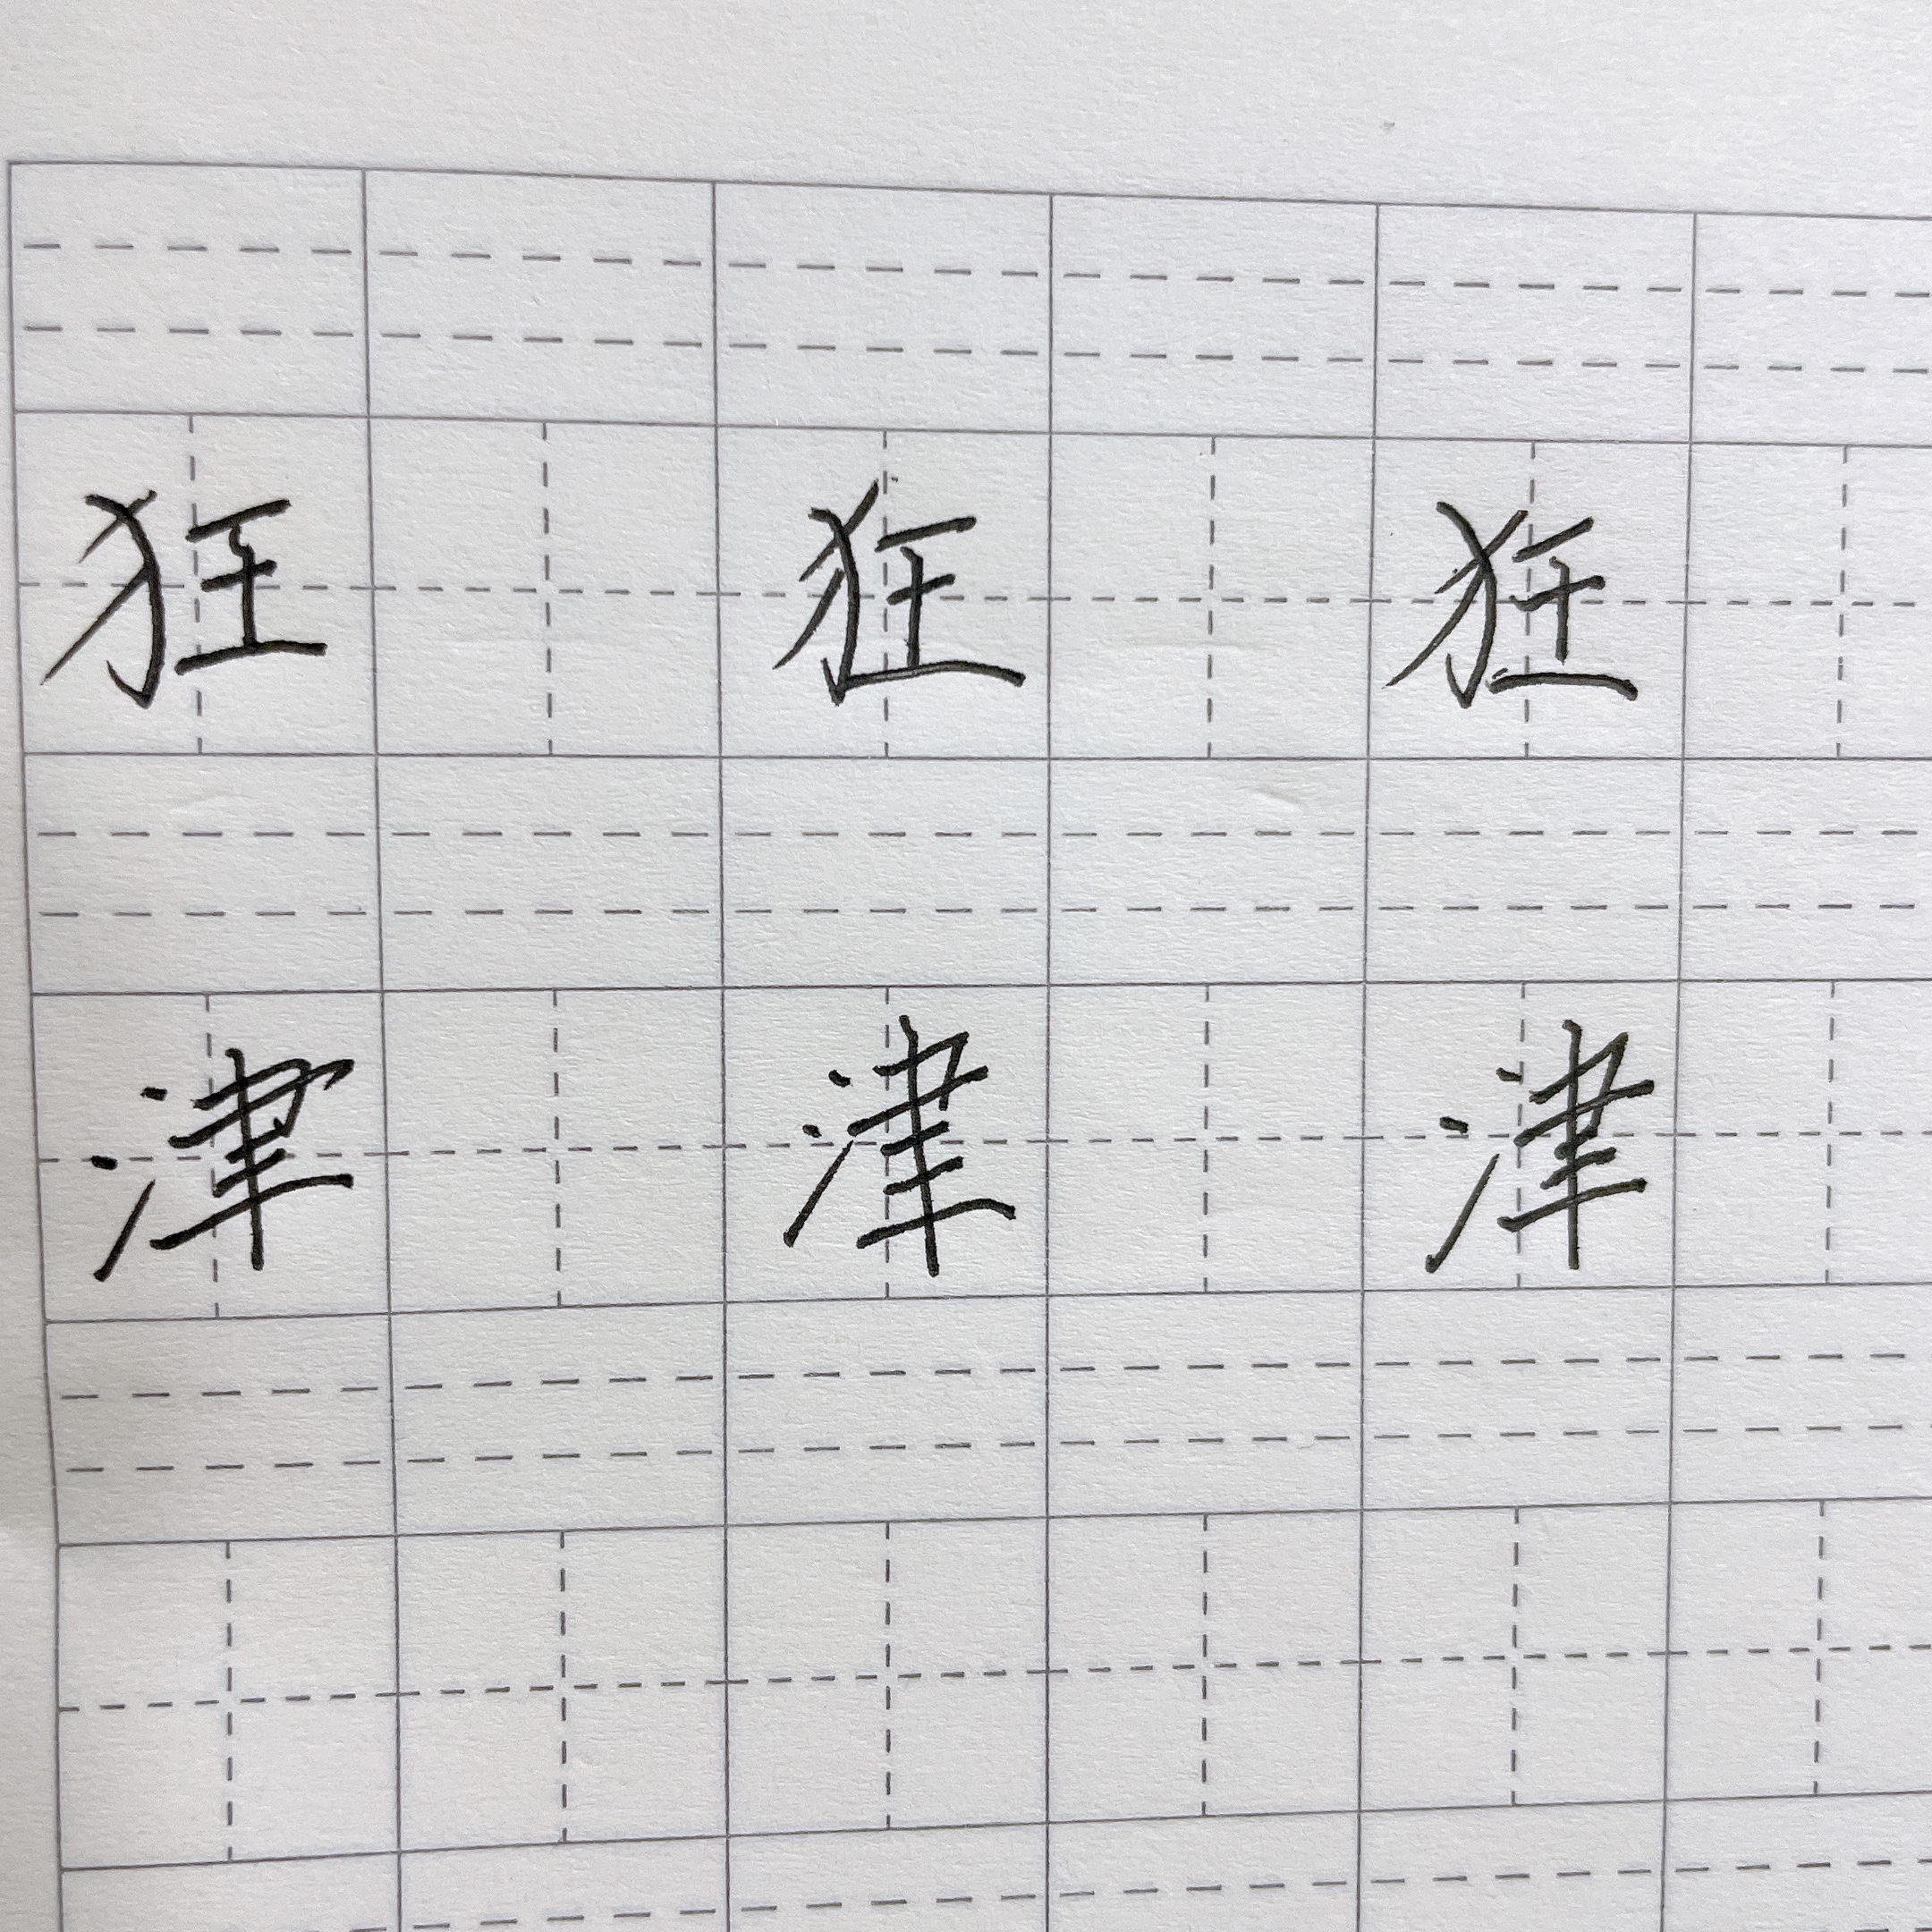 狂 狂 狂
津 津 津